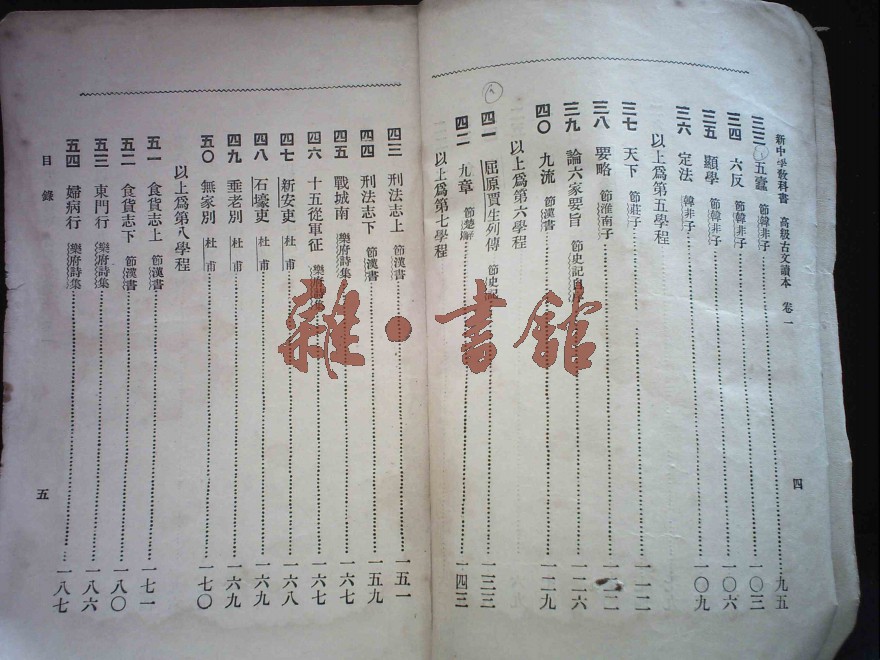 新中學教科書 高級古文讀本 卷一
三三 五蠹 節韓非子 九五
三四 六反 節韓非子 一〇三
三五 顯學 節韓非子 一〇六
三六 定法 韓非子 一〇九
以上爲第五學程
三七 天下 節莊子 一一二
三八 要略 節淮南子
三九 論六家要旨 節史記自 一二六
四〇 九流 節漢書 一二九
以上爲第六學程
四一 屈原賈生列傳 節史記 一三三
四二 九章 節楚辭 一四三
以上爲第七學程
四
四三 刑法志上 節漢書 一五一
四四 刑法志下 節漢書 一五九
四五 戰城南 樂府詩集 一六七
四六 十五從軍征 樂府詩集 一六七
四七 新安吏 杜甫 一六八
四八 石壕吏 杜甫 一六九
四九 垂老別 杜甫 一六九
五〇 無家別 杜甫 一七〇
以上爲第八學程
五一 食貨志上 節漢書 一七一
五二 食貨志下 節漢書 一八〇
五三 東門行 樂府詩集 一八六
五四 婦病行 樂府詩集 一八七
目錄
五
雜·書館